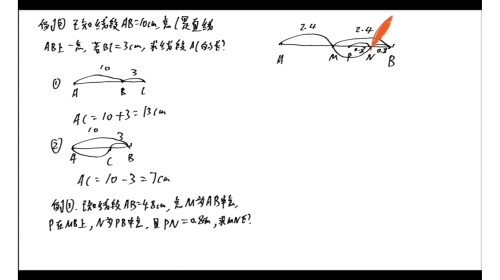 例① 已知线段AB=10cm,点C是直线
AB上一点,若BC=3cm,求线段AC的长?
①
10 3
A B C
AC=10+3=13cm
②
10
3
A C B
AC=10-3=7cm
例①.已知线段AB=4.8cm,点M为AB中点,
P在MB上,N为PB中点,且PN=0.8cm,求MN长?
2.4 2.4
0.8 0.8
A M P N B